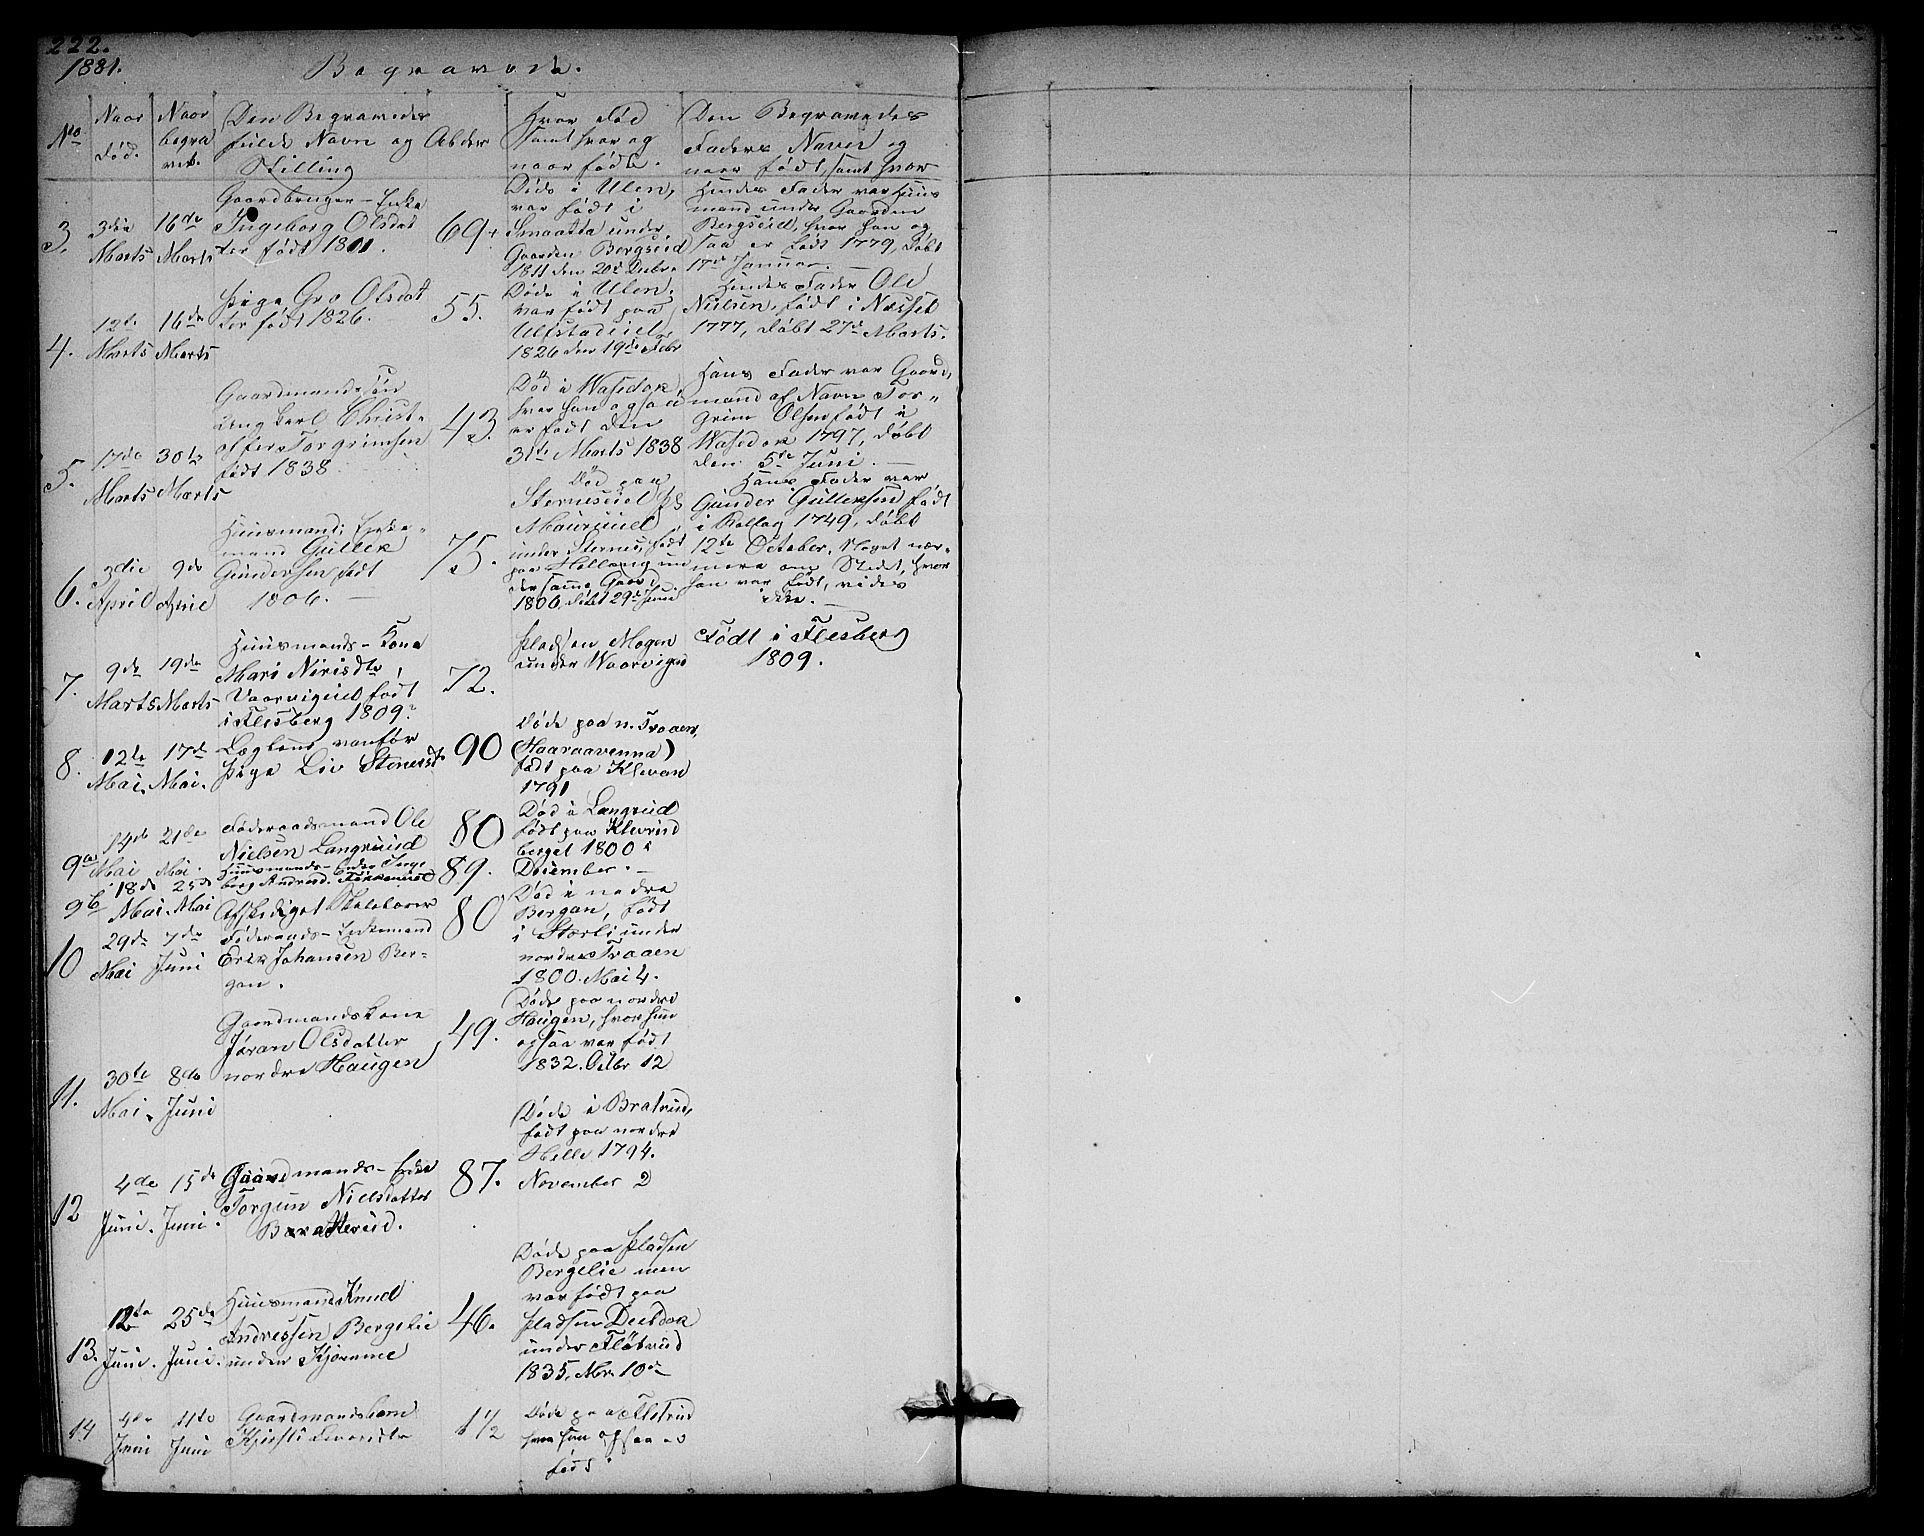 222.
1881.
Begravede.
No
Naar
død.
Naar
begra
vet.
Den Begravedes
fulde Navn og
Stilling
Alder
Hvor død
samt hvor og
naar født.
Den Begravedes
Faders Navn og
naar født, samt hvor
3.
3die
Marts
16de
Marts
Gaardbruger-Enke
Ingeborg Olsdat
ter født 1811.
69.
Døde i Ulen,
var født i
under
Gaarden Bergseid
1811 den 20de Decbr.
Hendes Fader var Huus
mand under Gaarden
Bergseid, hvor han og
saa er født 1779, døbt
17de Januar.
4.
12te
Marts
16de
Marts
Pige Gro Olsdat
ter født 1826.
55.
Døde i Ulen.
var født paa
Ulfstadeiet
1826 den 19de Febr
Hendes Fader Ole
Nielsen, født i Næsset
1777, døbt 27de Marts.
5.
17de
Marts
30te
Marts
Gaardmandssøn
Ung Karl Christ-
offer Torgrimsen
født 1838
43.
Død i Wasedok
hvor han ogsaa
er født den
31te Marts 1838
Hans Fader var Gaard
mand af Navn Tor-
grim Olsen født i
Wasedok 1797, døbt
den 5te Juni.
6.
3die
April
9de
April
Huusmand, Enke-
mand Gullek
Gundersen født
1806.
75.
Død paa
Sterneseiet
under Sternes, født
paa un
der samme Gaard
1806, døbt 29de Juni
Hans Fader var
Gunder Gulleksen født
i Rollag 1749, døbt
12te October. Noget nær-
mere om Stedet, hvor
han var født, vides
ikke.
7.
9de
Marts
19de
Marts
Huusmands-Kone
Mari Nirisdtr
Vaarvigeiet født
i Flesberg 1809.
72.
Pladsen Mogen
under Waarviged
Født i Flesberg
1809.
8.
12te
Mai.
17de
Mai.
Læglems vanfør
Pige Liv Stenersdtr
90
Døde paa n. Traaen,
(Haaraavenna)
født paa Klevan
1791
9a
14de
Mai
21de
Mai.
Føderaadsmand Ole
Nielsen Langruud
80
Død i Langrud
født paa Klevrud
berget 1800 i
December.
9b
18de
Mai.
25de
Mai
Huusmands-Enke Inge
borg Andersd.
89.
10
29de
Mai
7de
Juni
Afskediget Skolelærer
Føderaads-Enkemand
Erik Johansen Ber-
gan.
80
Død i nedre
Bergan, født
i Storli under
nordre Traaen
1800. Mai 4.
11.
30te
Mai.
8de
Juni
Gaardmandskone
Jøran Olsdatter
nordre Haugen
49.
Døde paa nordre
Haugen, hvor hun
ogsaa var født
1832. Octbr 12
12
4de
Juni.
15de
Juni.
Gaardmands-Enke
Torgun Nielsdatter
Bratterud.
87.
Døde i Bratrud,
født paa nordre
Helle 1794.
November 2
13.
12te
Juni.
25de
Juni.
Huusmand Knud
Andressen Bergelie
under Kjømme
46.
Døde paa Pladsen
Bergelie men
var født paa
Pladsen Deildok
under Fløtrud
1835, Nbr. 10de
14
4de
Juni
11te
Juni
Gaardmandsbarn
Kjersti
1½
Døde paa
hvor hun ogsaa er
født.